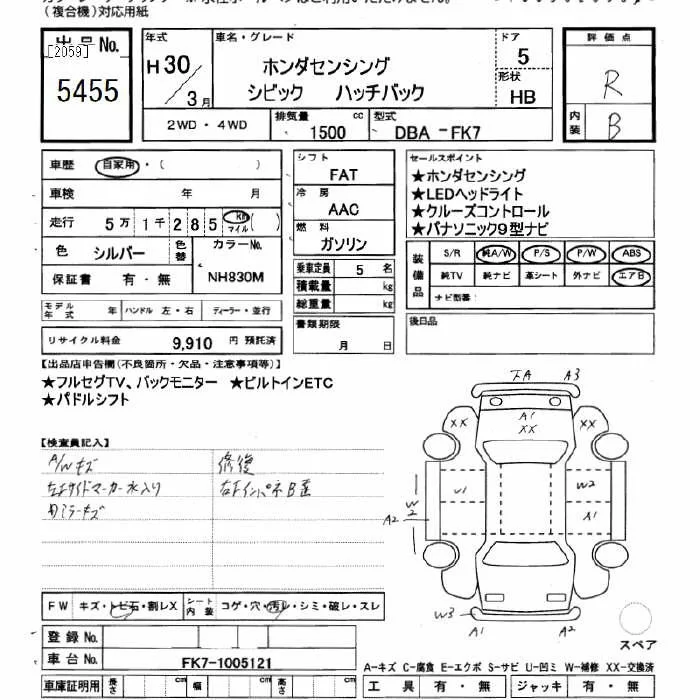 (複合機)対応用紙
出品No.
[2059]
5455
年式
H30/3月
車名・グレード
ホンダセンシング
シビック ハッチバック
ドア
5
形状
HB
2WD・4WD
排気量
1500 cc
型式
DBA-FK7
評価点
R
内装
B
車歴 自家用・( )
車検 年 月
走行 5万1千285 Km マイル ( )
色 シルバー 色替 カラーNo. NH830M
保証書 有・無
モデル年式 年 ハンドル 左・右 ディーラー・並行
リサイクル料金 9,910 円 預託済
シフト
FAT
冷房
AAC
燃料
ガソリン
乗車定員 5 名
積載量 kg
総重量 kg
書類期限
月 日
セールスポイント
★ホンダセンシング
★LEDヘッドライト
★クルーズコントロール
★パナソニック9型ナビ
装備品
S/R 純A/W P/S P/W ABS
純TV 純ナビ 革シート 外ナビ エアB
ナビ型番:
後日品
【出品店申告欄(不良箇所・欠品・注意事項等)】
★フルセグTV、バックモニター ★ビルトインETC
★パドルシフト
【検査員記入】
A/Wキズ
左右サイドマーカー水入り
内ミラーキズ
修復
右Fインパネ B歪
FW キズ・トビ石・割レX シート内装 コゲ・穴・汚レ・シミ・破レ・スレ
登録No.
車台No. FK7-1005121
車庫証明用 長さ cm 幅 cm 高さ cm
A3
XX
A1
XX
XX
W1
W2
A1
A2
W2
W3
A1
A2
スペア
A-キズ C-腐食 E-エクボ S-サビ U-凹ミ W-補修 XX-交換済
工具 有・無 ジャッキ 有・無